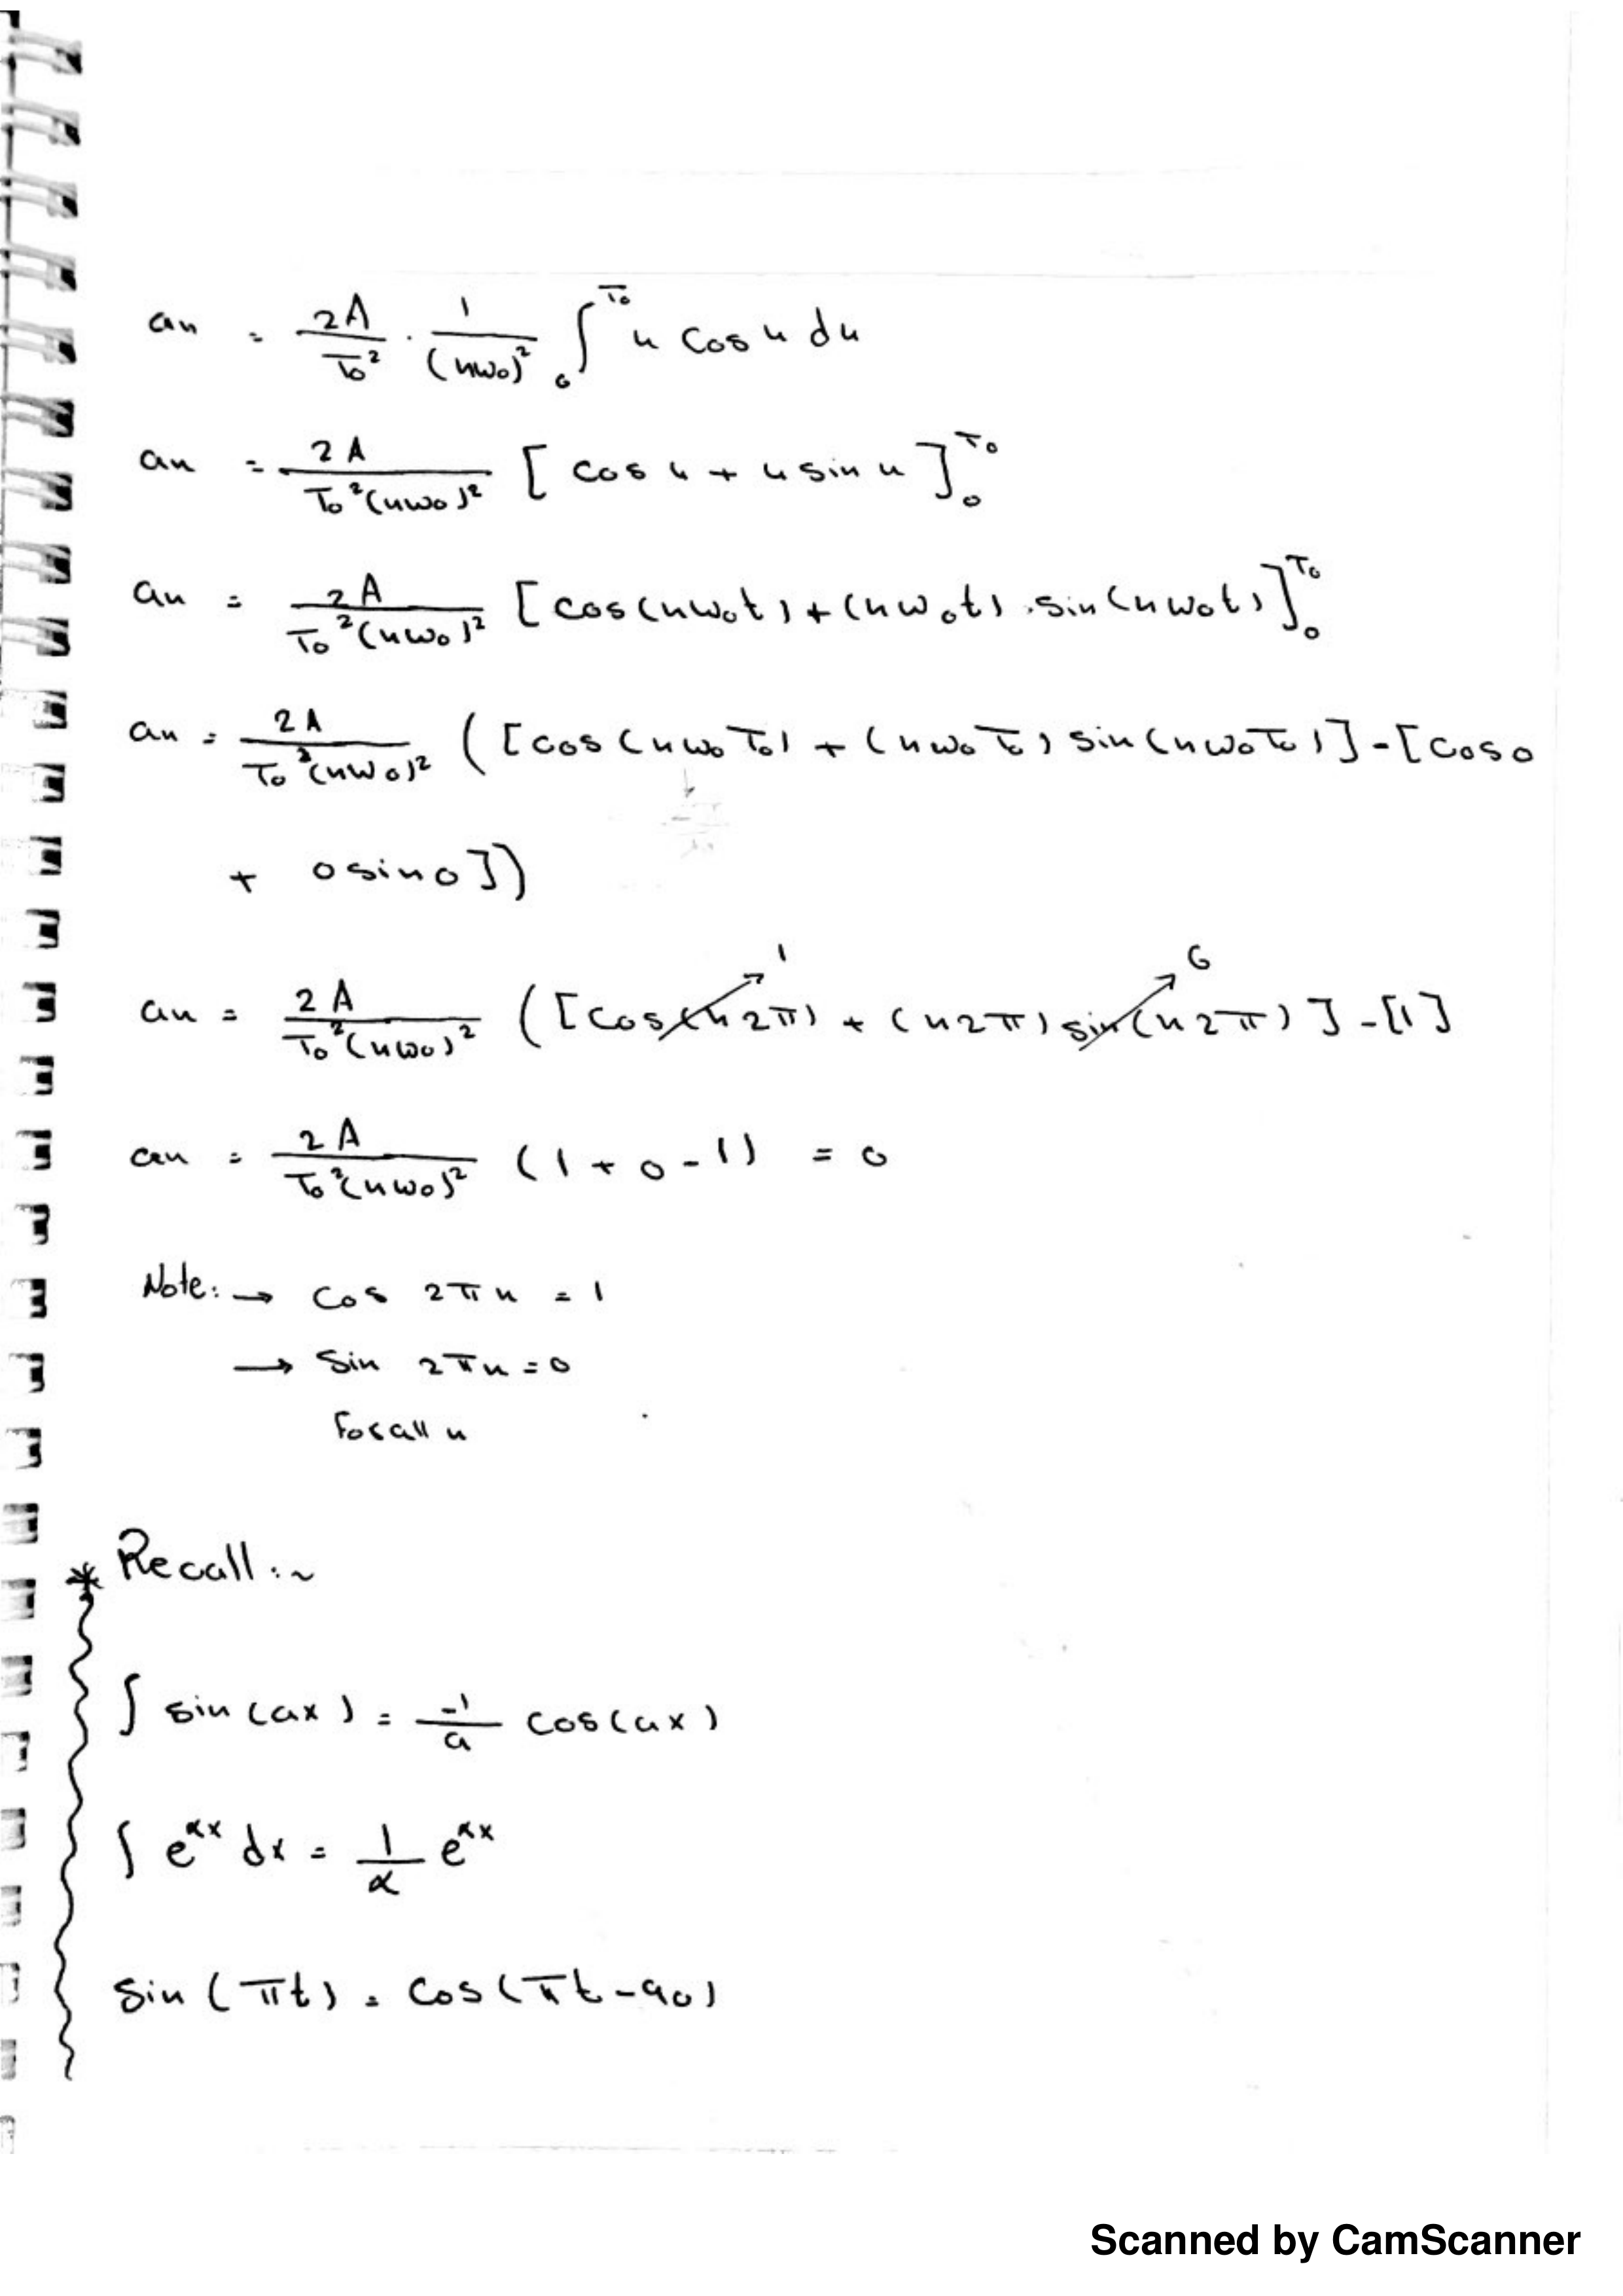 an = 2A/T₀² · 1/(nω₀)² ∫₀^T₀ u cos u du
an = 2A/T₀²(nω₀)² [cos u + u sin u]₀^T₀
an = 2A/T₀²(nω₀)² [cos(nω₀t) + (nω₀t) . sin(nω₀t)]₀^T₀
an = 2A/T₀²(nω₀)² ([cos(nω₀T₀) + (nω₀T₀) sin(nω₀T₀)] - [cos 0
+ 0 sin 0])
1 0
an = 2A/T₀²(nω₀)² ([cos(n2π) + (n2π) sin(n2π)] - [1]
an = 2A/T₀²(nω₀)² (1 + 0 - 1) = 0
Note: → cos 2πn = 1
→ sin 2πn = 0
For all n
* Recall :~
∫ sin(ax) = -1/a cos(ax)
∫ e^αx dx = 1/α e^αx
sin(πt) = cos(πt - 90)
Scanned by CamScanner